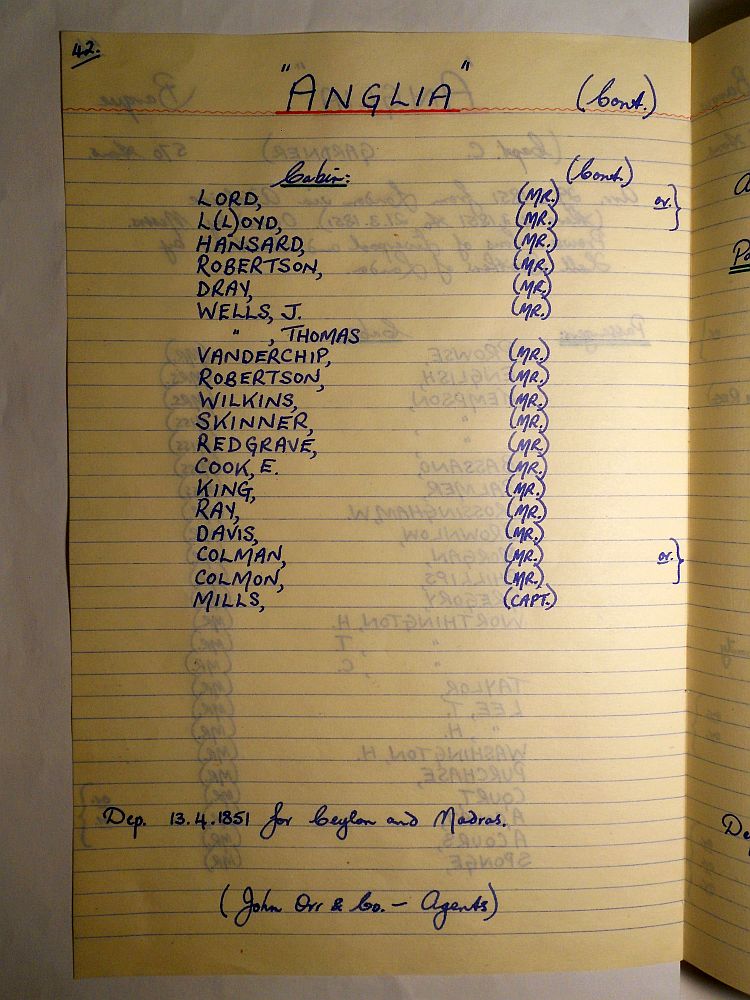 42.
"ANGLIA" (Cont.)
Cabin: (Cont.)
LORD, (MR.) or. }
L(L)OYD, (MR.)
HANSARD, (MR.)
ROBERTSON, (MR.)
DRAY, (MR.)
WELLS, J. (MR.)
" , THOMAS
VANDERCHIP, (MR.)
ROBERTSON, (MR.)
WILKINS, (MR.)
SKINNER, (MR.)
REDGRAVE, (MR.)
COOK, E. (MR.)
KING, (MR.)
RAY, (MR.)
DAVIS, (MR.)
COLMAN, (MR.) or. }
COLMON, (MR.)
MILLS, (CAPT.)
Dep. 13.4.1851 for Ceylon and Madras.
(John Orr & Co. — Agents)